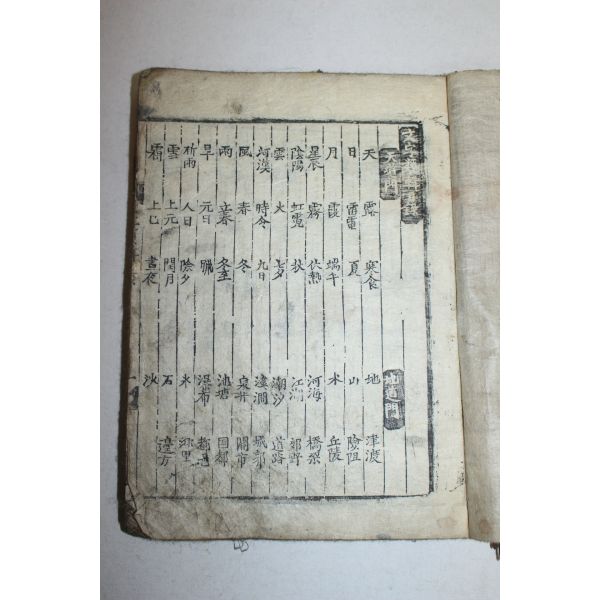 天道門 地道門
天 露 寒食 地 津渡
日 雷電 夏 山 險阻
月 霞 端午 水 丘陵
星辰 霧 伏熱 河海 橋梁
陰陽 虹霓 秋 江湖 郊野
雲 火 七夕 潮汐 道路
河漢 時令 九日 溪澗 城郭
風 春 冬 泉井
雨 立春 冬至 池塘 国都
旱 元日 臘 瀑布
祈雨 人日 除夕 氷 鄉里
雪 上元 閏月 石 邊方
霜 上巳 晝夜 沙